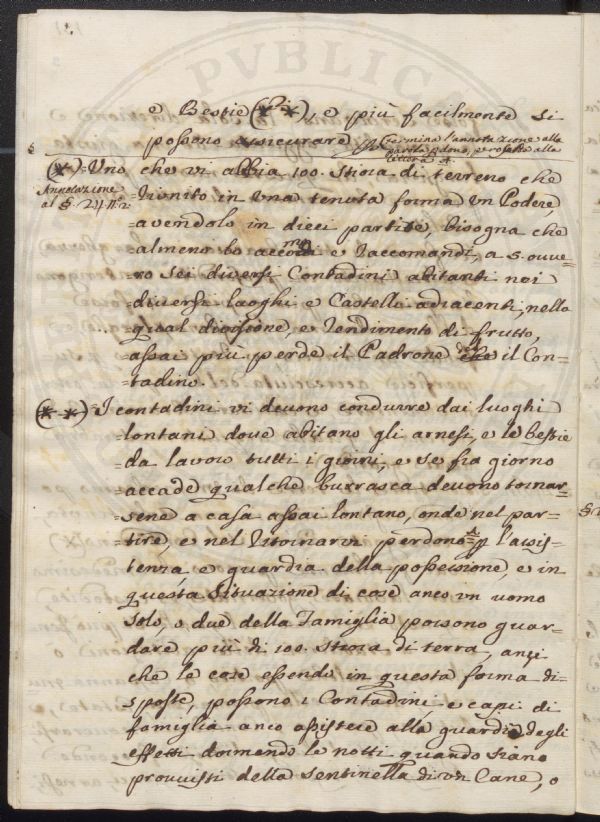 e Bestie (**), e più facilmente si
possono assicurare (Termina l'annotazione alla
parola
lettera A.
(*) Uno che vi abbia 100. Stiora di terreno che
Annotazione
al §. 24 N.° 2
=riunito in una tenuta forma un Podere,
=avendolo in dieci partite, bisogna che
=almeno lo accomodi e raccomandi, a 5. ouve=
=ro sei diversi Contadini abitanti nei
=diversi luoghi e Castelli adiacenti, nella
=qual divisione, e rendimento di frutto,
=assai più perde il Padrone che il Con=
=tadino.
(**) I contadini vi devono condurre dai luoghi
=lontani dove abitano gli arnesi, e le bestie
=da lavoro tutti i giorni, e se fra giorno
=accade qualche burrasca devono tornar=
=sene a casa assai lontano, onde nel par=
=tire, e nel ritornarvi perdono l'assis=
=tenza e guardia della possessione, e in
questa situazione di case anco un uomo
solo, o due della Famiglia possono guar=
dare più di 100. Stiora di terra, anzi
che le case essendo in questa forma di=
sposte, possono i Contadini, e capi di
famiglia anco assistere alla guardia degli
effetti dormendo le notti quando siano
provvisti della sentinella di un Cane, o